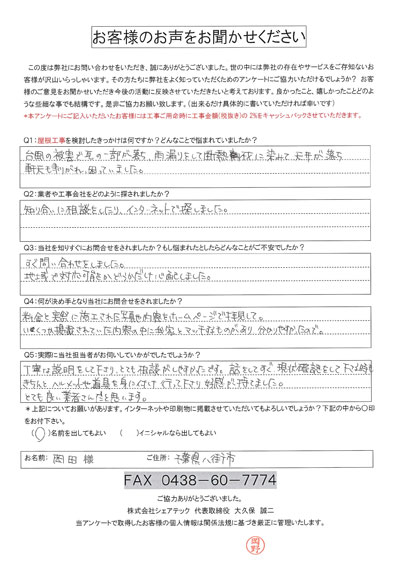 お客様のお声をお聞かせください
この度は弊社にお問い合わせをいただき、誠にありがとうございました。世の中には弊社の存在やサービスをご存知ないお
客様が沢山いらっしゃいます。その方たちに弊社をよく知っていただくためのアンケートにご協力いただけるでしょうか? お客
様のご意見をお聞かせいただき今後の活動に反映させていただきたいと考えております。良かったこと、嬉しかったことどのよ
うな些細な事でも結構です。是非ご協力お願い致します。(出来るだけ具体的に書いていただければ幸いです)
*本アンケートにご記入いただいたお客様には工事ご用命時に工事金額(税抜き)の2%をキャッシュバックさせていただきます。
Q1:屋根工事を検討したきっかけは何ですか?どんなことで悩まれていましたか?
台風の被害で瓦の一部が落ち、雨漏りをして断熱 に染みて天井が落ち
軒天も剥がれ、困っていました。
Q2:業者や工事会社をどのように探されましたか?
知り合いに相談をしたり、インターネットで探しました。
Q3:当社を知りすぐにお問合せをされましたか?もし悩まれたとしたらどんなことがご不安でしたか?
すぐ問い合わせをしました。
地域で対応可能かどうかだけ心配しました。
Q4:何が決め手となり当社にお問合せをされましたか?
料金と実際に施工された写真や内容をホームページで拝見して。
いくつか掲載されていた内容の中に我家とマッチするものがあり分かりやすかったので。
Q5:実際に当社担当者がお伺いしていかがでしたでしょうか?
丁寧な説明をして下さり、とても相談がしやすかったです。話をしてすぐ現状確認をして下さる時も
きちんとヘルメットや道具を身に付け行って下さり好感が持てました。
とても良い業者さんだと思います。
*上記についてお願いがあります。インターネットや印刷物に掲載させていただいてもよろしいでしょうか?下記の中から〇印
をお付下さい。
(〇)名前を出してもよい ( )イニシャルなら出してもよい
お名前: 岡田 様 ご住所: 千葉県八街市
FAX 0438-60-7774
ご協力ありがとうございました。
株式会社シェアテック 代表取締役 大久保 誠二
当アンケートで取得したお客様の個人情報は関係法規に基づき厳正に管理いたします。
岡野